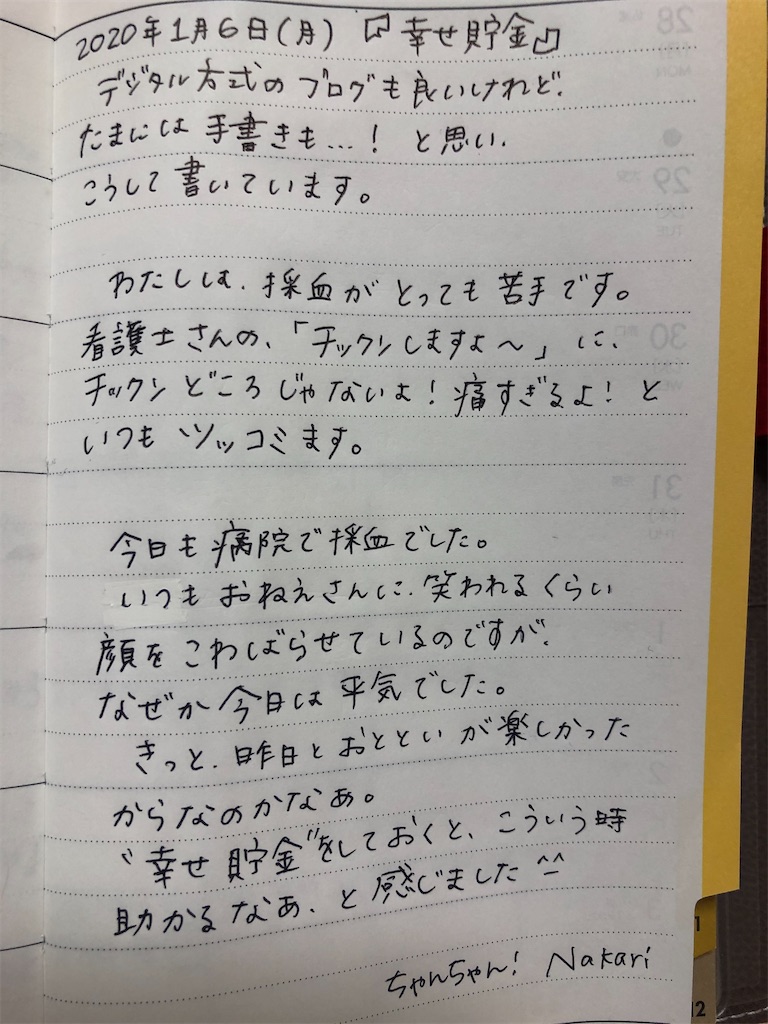 2020年1月6日(月)『幸せ貯金』
デジタル方式のブログも良いけれど、
たまには手書きも…！と思い、
こうして書いています。
わたしは、採血がとっても苦手です。
看護士さんの、「チックンしますよ～」に、
チックンどころじゃないよ！痛すぎるよ！と
いつもツッコミます。
今日も病院で採血でした。
いつもおねえさんに、笑われるくらい
顔をこわばらせているのですが、
なぜか今日は平気でした。
きっと、昨日とおとといが楽しかった
からなのかなぁ。
“幸せ貯金”をしておくと、こういう時
助かるなぁ、と感じました ^_^
ちゃんちゃん！ Nakari
28
MON
29
TUE
30
31
THU
1
2
3
1
12